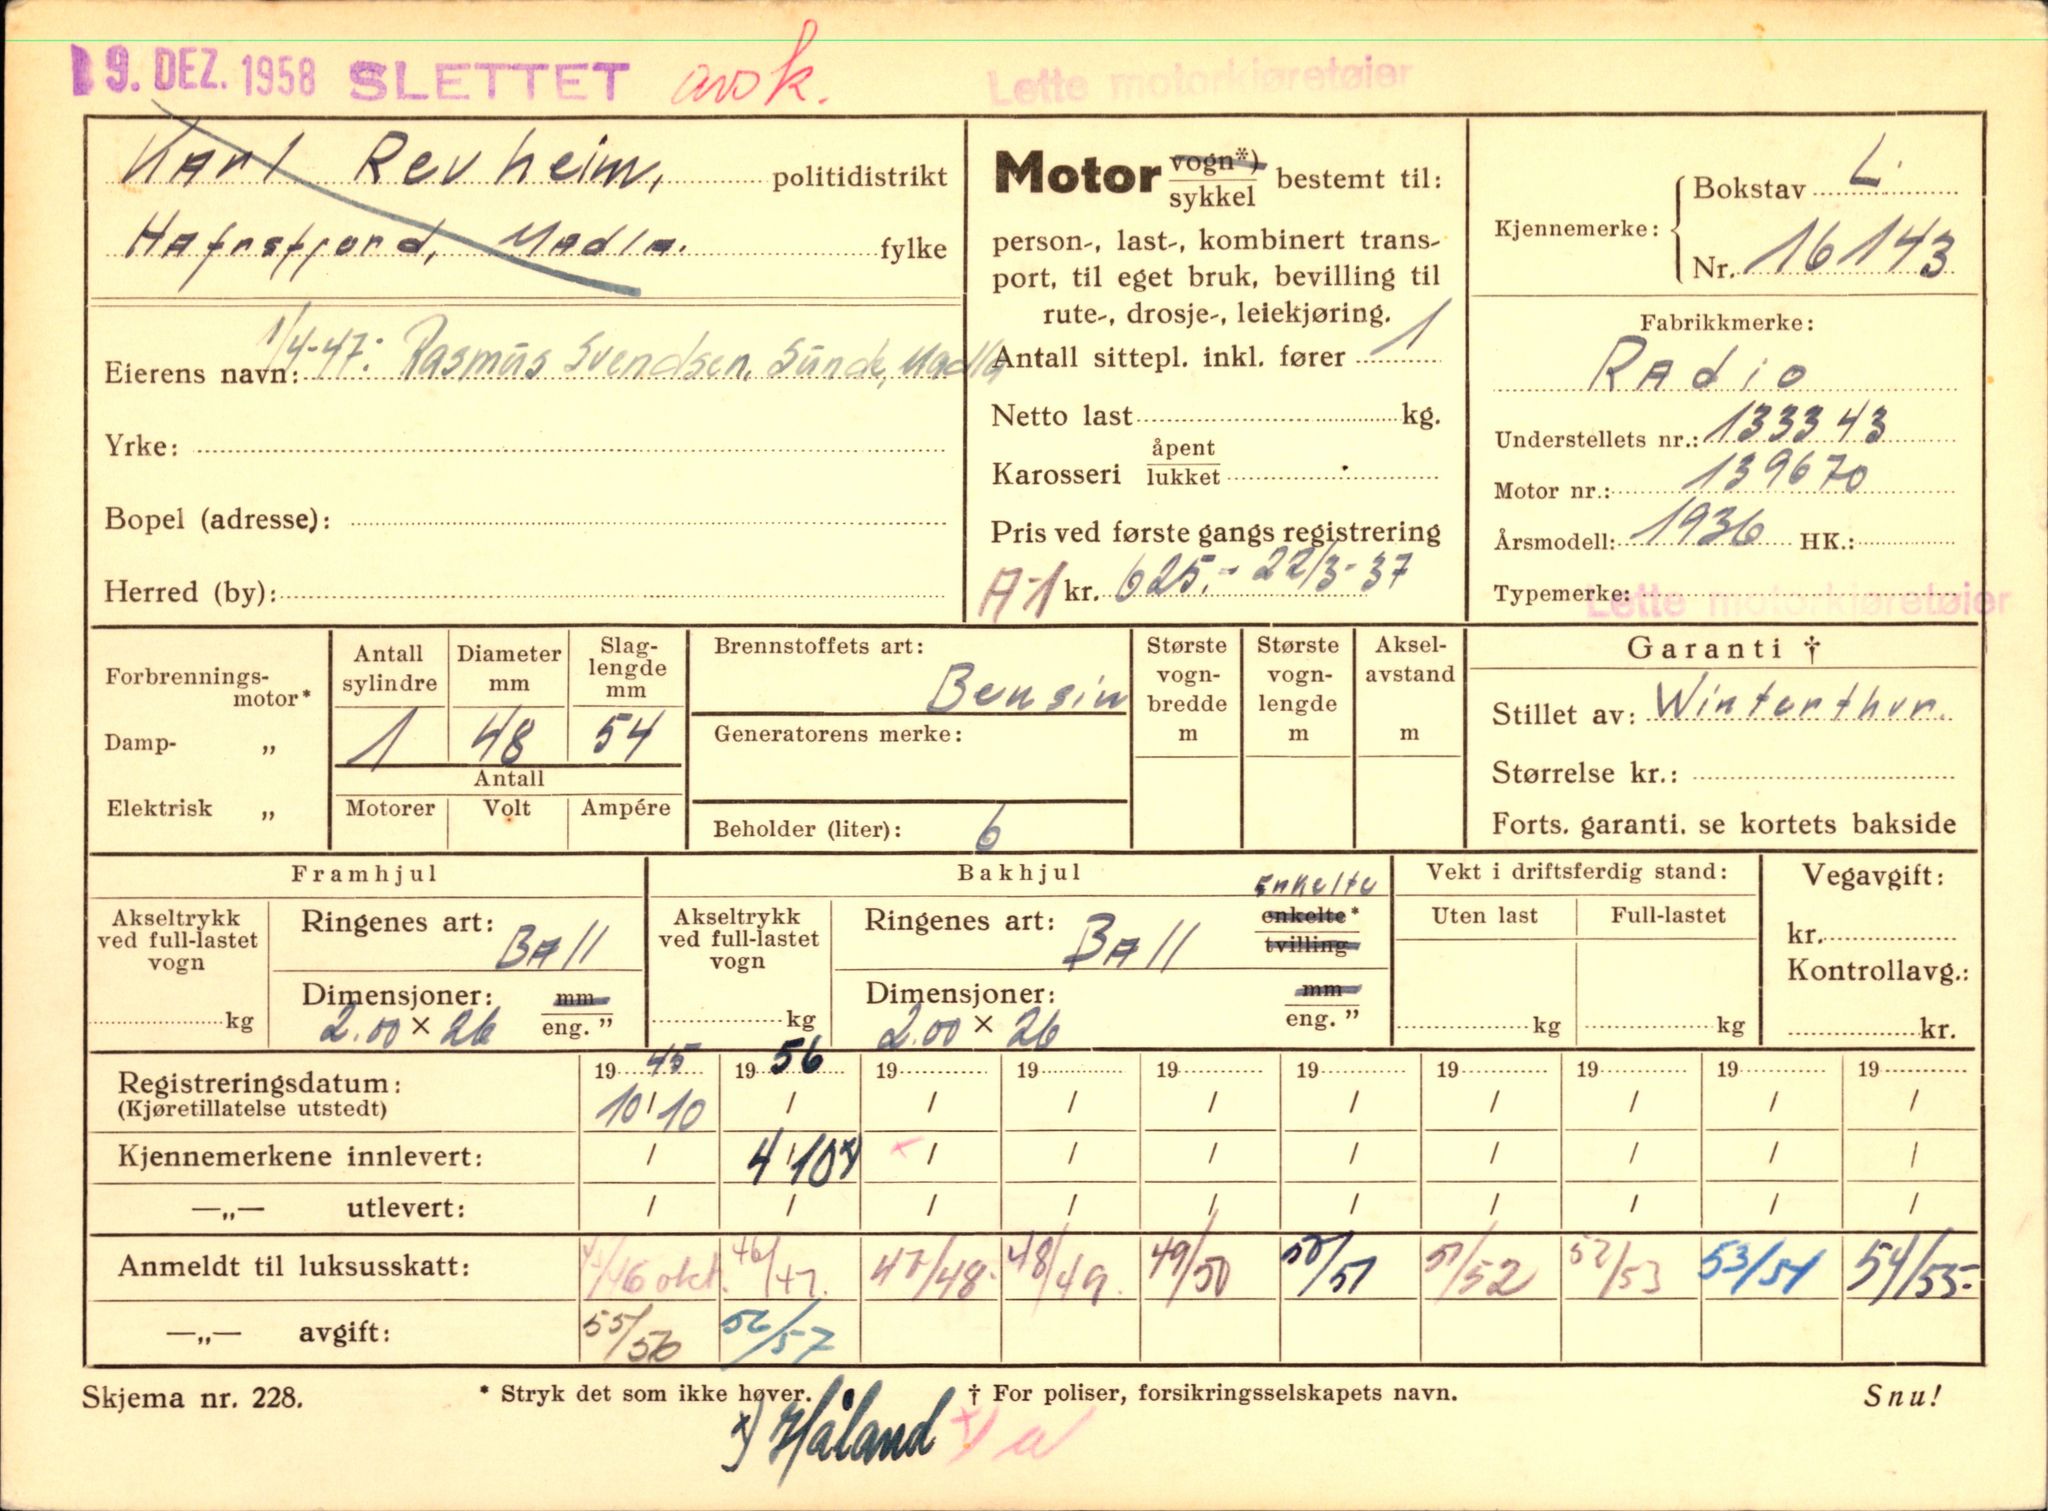 19. DEZ. 1958 SLETTET avsk. Lette motorkjøretøier
Karl Revheim, politidistrikt
Hafrsfjord, Madla. fylke
Eierens navn: 1/4-47: Rasmus Svendsen, Sunde, Madla
Yrke:
Bopel (adresse):
Herred (by):
Motor vogn*) sykkel bestemt til:
person-, last-, kombinert trans-
port, til eget bruk, bevilling til
rute-, drosje-, leiekjøring.
Antall sittepl. inkl. fører 1
Netto last kg.
Karosseri åpent lukket
Pris ved første gangs registrering
A-1 kr. 625.- 22/3-37
Kjennemerke: Bokstav L.
Nr. 16143
Fabrikkmerke:
Radio
Understellets nr.: 133343
Motor nr.: 139670
Årsmodell: 1936 HK.:
Typemerke: Lette motorkjøretøier
Forbrennings-
motor*
Damp- „
Elektrisk „
Antall sylindre
1
Diameter mm
48
Slag-
lengde
mm
54
Antall
Motorer Volt Ampére
Brennstoffets art:
Bensin
Generatorens merke:
Beholder (liter): 6
Største
vogn-
bredde
m
Største
vogn-
lengde
m
Aksel-
avstand
m
Garanti †
Stillet av: Winterthur.
Størrelse kr.:
Forts. garanti. se kortets bakside
Framhjul
Akseltrykk
ved full-lastet
vogn
kg
Ringenes art:
Ball
Dimensjoner: mm
2.00 × 26 eng. ”
Bakhjul
Akseltrykk
ved full-lastet
vogn
kg
Ringenes art: enkelte
Ball enkelte*
tvilling
Dimensjoner: mm
2.00 × 26 eng. ”
Vekt i driftsferdig stand:
Uten last Full-lastet
kg kg
Vegavgift:
kr.
Kontrollavg.:
kr.
19 45 19 56 19 19 19 19 19 19 19 19
Registreringsdatum: 10/10 / / / / / / / / /
(Kjøretillatelse utstedt)
Kjennemerkene innlevert: / 4/10 x) x / / / / / / / /
—„— utlevert: / / / / / / / / / /
Anmeldt til luksusskatt: /46 okt. 46/47. 47/48. 48/49. 49/50 50/51 51/52 52/53 53/54 54/55-
—„— avgift: 55/56 56/57
Skjema nr. 228. * Stryk det som ikke høver. † For poliser, forsikringsselskapets navn. Snu!
x) Håland x)